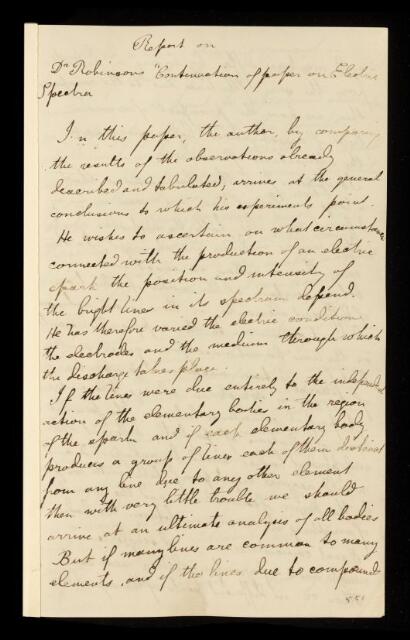 Report on
Dr Robinsons "Continuation of paper on Electric
Spectra
In this paper, the author, by comparing
the results of the observations already
described and tabulated, arrives at the general
conclusions to which his experiments point.
He wishes to ascertain on what circumstances
connected with the production of an electric
spark the position and intensity of
the bright lines in its spectrum depend.
He has therefore varied the electric condition
the electrodes and the medium through which
the discharge takes place.
If the lines were due entirely to the independent
action of the elementary bodies in the region
of the spark and if each elementary body
produces a group of lines each of them distinct
from any line due to any other element
then with very little trouble we should
arrive at an ultimate analysis of all bodies
But if many lines are common to many
elements, and if the lines due to compound
551